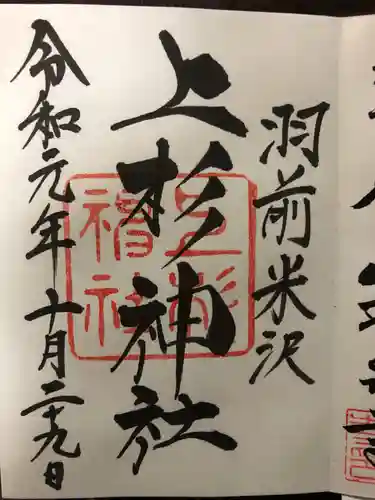 羽前米沢
上杉神社
令和元年十月二十九日
上杉神社